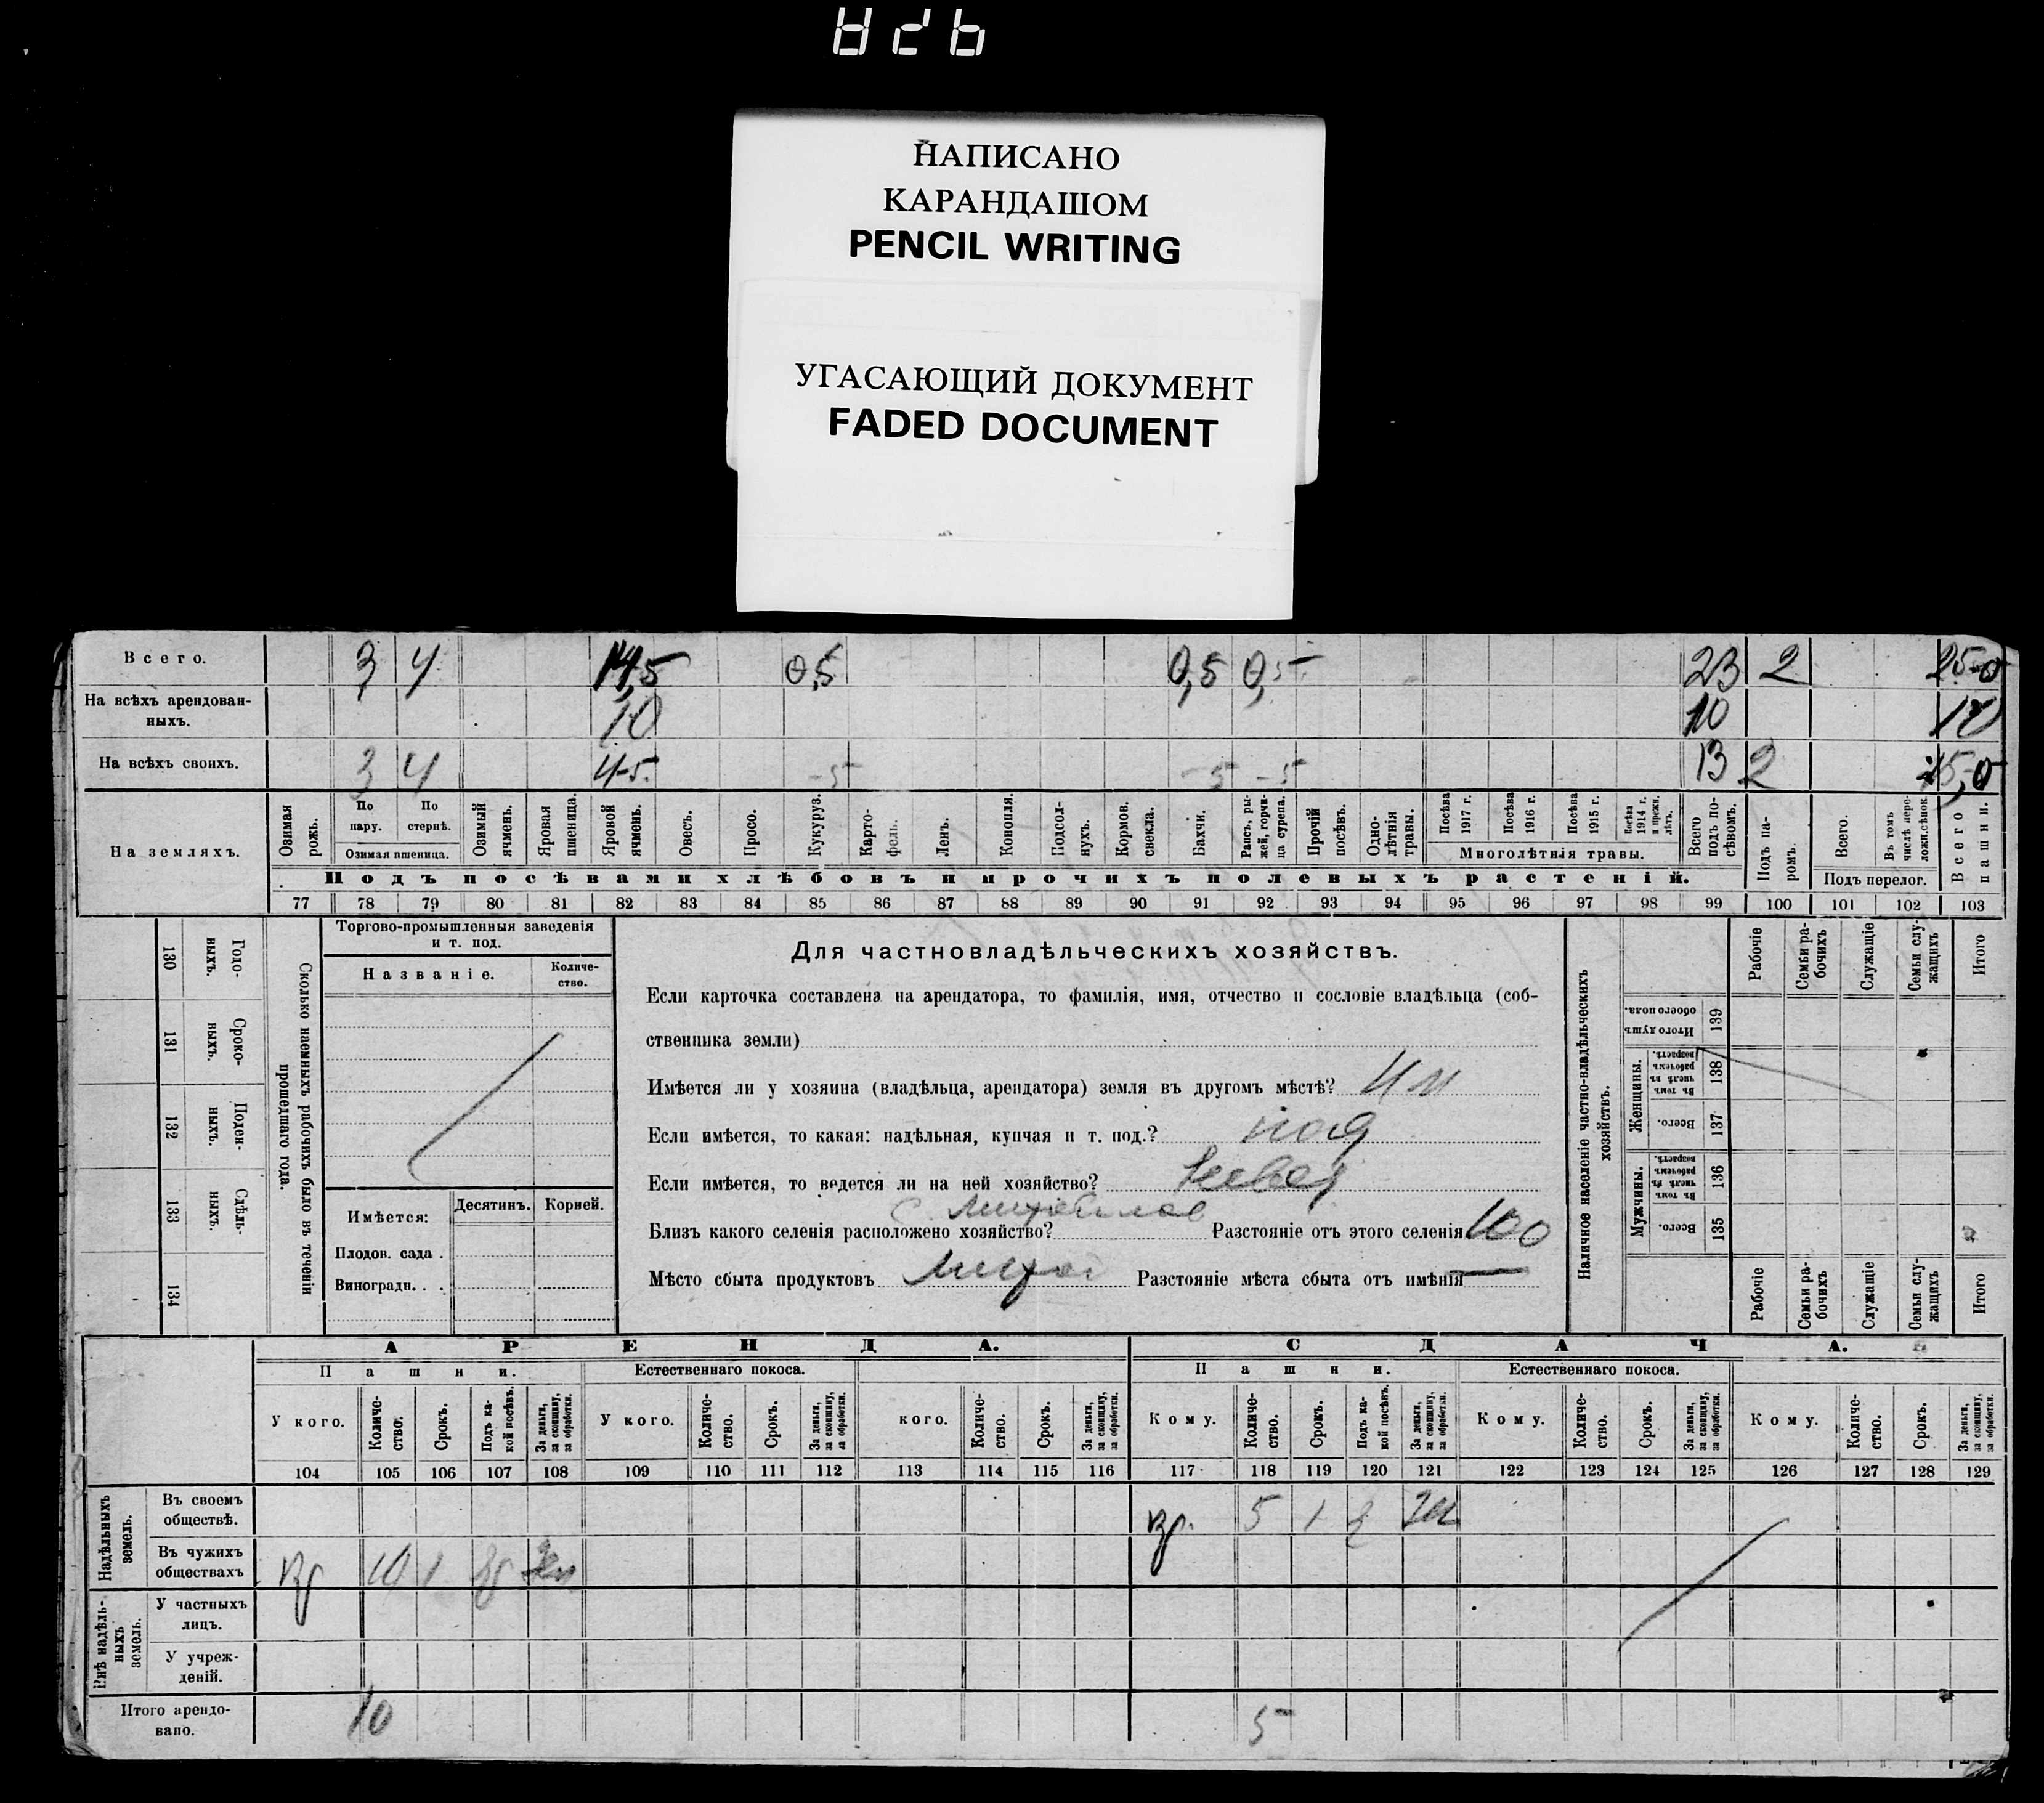 НАПИСАНО
КАРАНДАШОМ
PENCIL WRITING
УГАСАЮЩИЙ ДОКУМЕНТ
FADED DOCUMENT
Всего. 3 4 14,5 0,5 0,5 0,5 23 2 25-0
На всѣхъ арендован-
ныхъ. 10 10 10
На всѣхъ своихъ. 3 4 4-5 -5 -5 -5 13 2 15,0
На земляхъ.
Озимая рожь.
По пару.
По стернѣ.
Озимая пшеница.
Озимый ячмень.
Яровая пшеница.
Яровой ячмень.
Овесъ.
Просо.
Кукуруз.
Карто-
фель.
Ленъ.
Конопля.
Подсол-
нухъ.
Кормов. свекла.
Бахчи.
Рапсъ, ры-
жей, горчи-
ца сурепа.
Прочій посѣвъ.
Одно-
лѣтнія травы.
Посѣва 1917 г.
Посѣва 1916 г.
Посѣва 1915 г.
Посѣва 1914 г. и прежн. лѣтъ.
Многолѣтнія травы.
Всего подъ по-
сѣвомъ.
Подъ па-
ромъ.
Всего.
Въ томъ числѣ пере-
ложн. сѣнок.
Подъ перелог.
Всего пашни.
Подъ посѣвами хлѣбовъ и прочихъ полевыхъ растеній.
77 78 79 80 81 82 83 84 85 86 87 88 89 90 91 92 93 94 95 96 97 98 99 100 101 102 103
130 Годо-
ныхъ.
131 Сроко-
ныхъ.
132 Поден-
ныхъ.
133 Сдѣль-
ныхъ.
134
Сколько наемныхъ рабочихъ было въ теченіи
прошедшаго года.
Торгово-промышленныя заведенія
и т. под.
Названіе. Количе-
ство.
Имѣется: Десятинъ. Корней.
Плодов. сада .
Виноградн. . .
Для частновладѣльческихъ хозяйствъ.
Если карточка составлена на арендатора, то фамилія, имя, отчество и сословіе владѣльца (соб-
ственника земли)
Имѣется ли у хозяина (владѣльца, арендатора) земля въ другомъ мѣстѣ?
Если имѣется, то какая: надѣльная, купчая и т. под.?
Если имѣется, то ведется ли на ней хозяйство?
Близъ какого селенія расположено хозяйство? Разстояніе отъ этого селенія 100
Мѣсто сбыта продуктовъ Разстояніе мѣста сбыта отъ имѣнія —
Наличное населеніе частно-владѣльческихъ
хозяйствъ.
Рабочіе
Семьи ра-
бочихъ
Служащіе
Семьи слу-
жащихъ
Итого
Итого душъ обоего пола. 139
Женщины.
Въ томъ числѣ въ рабочемъ возрастѣ. 138
Всего. 137
Мужчины.
Въ томъ числѣ въ рабочемъ возрастѣ. 136
Всего. 135
Рабочіе
Семьи ра-
бочихъ
Служащіе
Семьи слу-
жащихъ
Итого
АРЕНДА. СДАЧА.
Пашни. Естественнаго покоса. Пашни. Естественнаго покоса.
У кого. Количе-
ство. Срокъ. Подъ ка-
кой посѣвъ. За деньги, за скопщину, за обработки.
У кого. Количе-
ство. Срокъ. За деньги, за скопщину, за обработки.
кого. Количе-
ство. Срокъ. За деньги, за скопщину, за обработки.
Кому. Количе-
ство. Срокъ. Подъ ка-
кой посѣвъ. За деньги, за скопщину, за обработки.
Кому. Количе-
ство. Срокъ. За деньги, за скопщину, за обработки.
Кому. Количе-
ство. Срокъ. За деньги, за скопщину, за обработки.
104 105 106 107 108 109 110 111 112 113 114 115 116 117 118 119 120 121 122 123 124 125 126 127 128 129
Надѣльныхъ
земель.
Въ своемъ
обществѣ. 5 1
Въ чужихъ
обществахъ 10 1
Внѣ надѣль-
ныхъ
земель.
У частныхъ
лицъ.
У учреж-
деній.
Итого арендо-
вано. 10 5